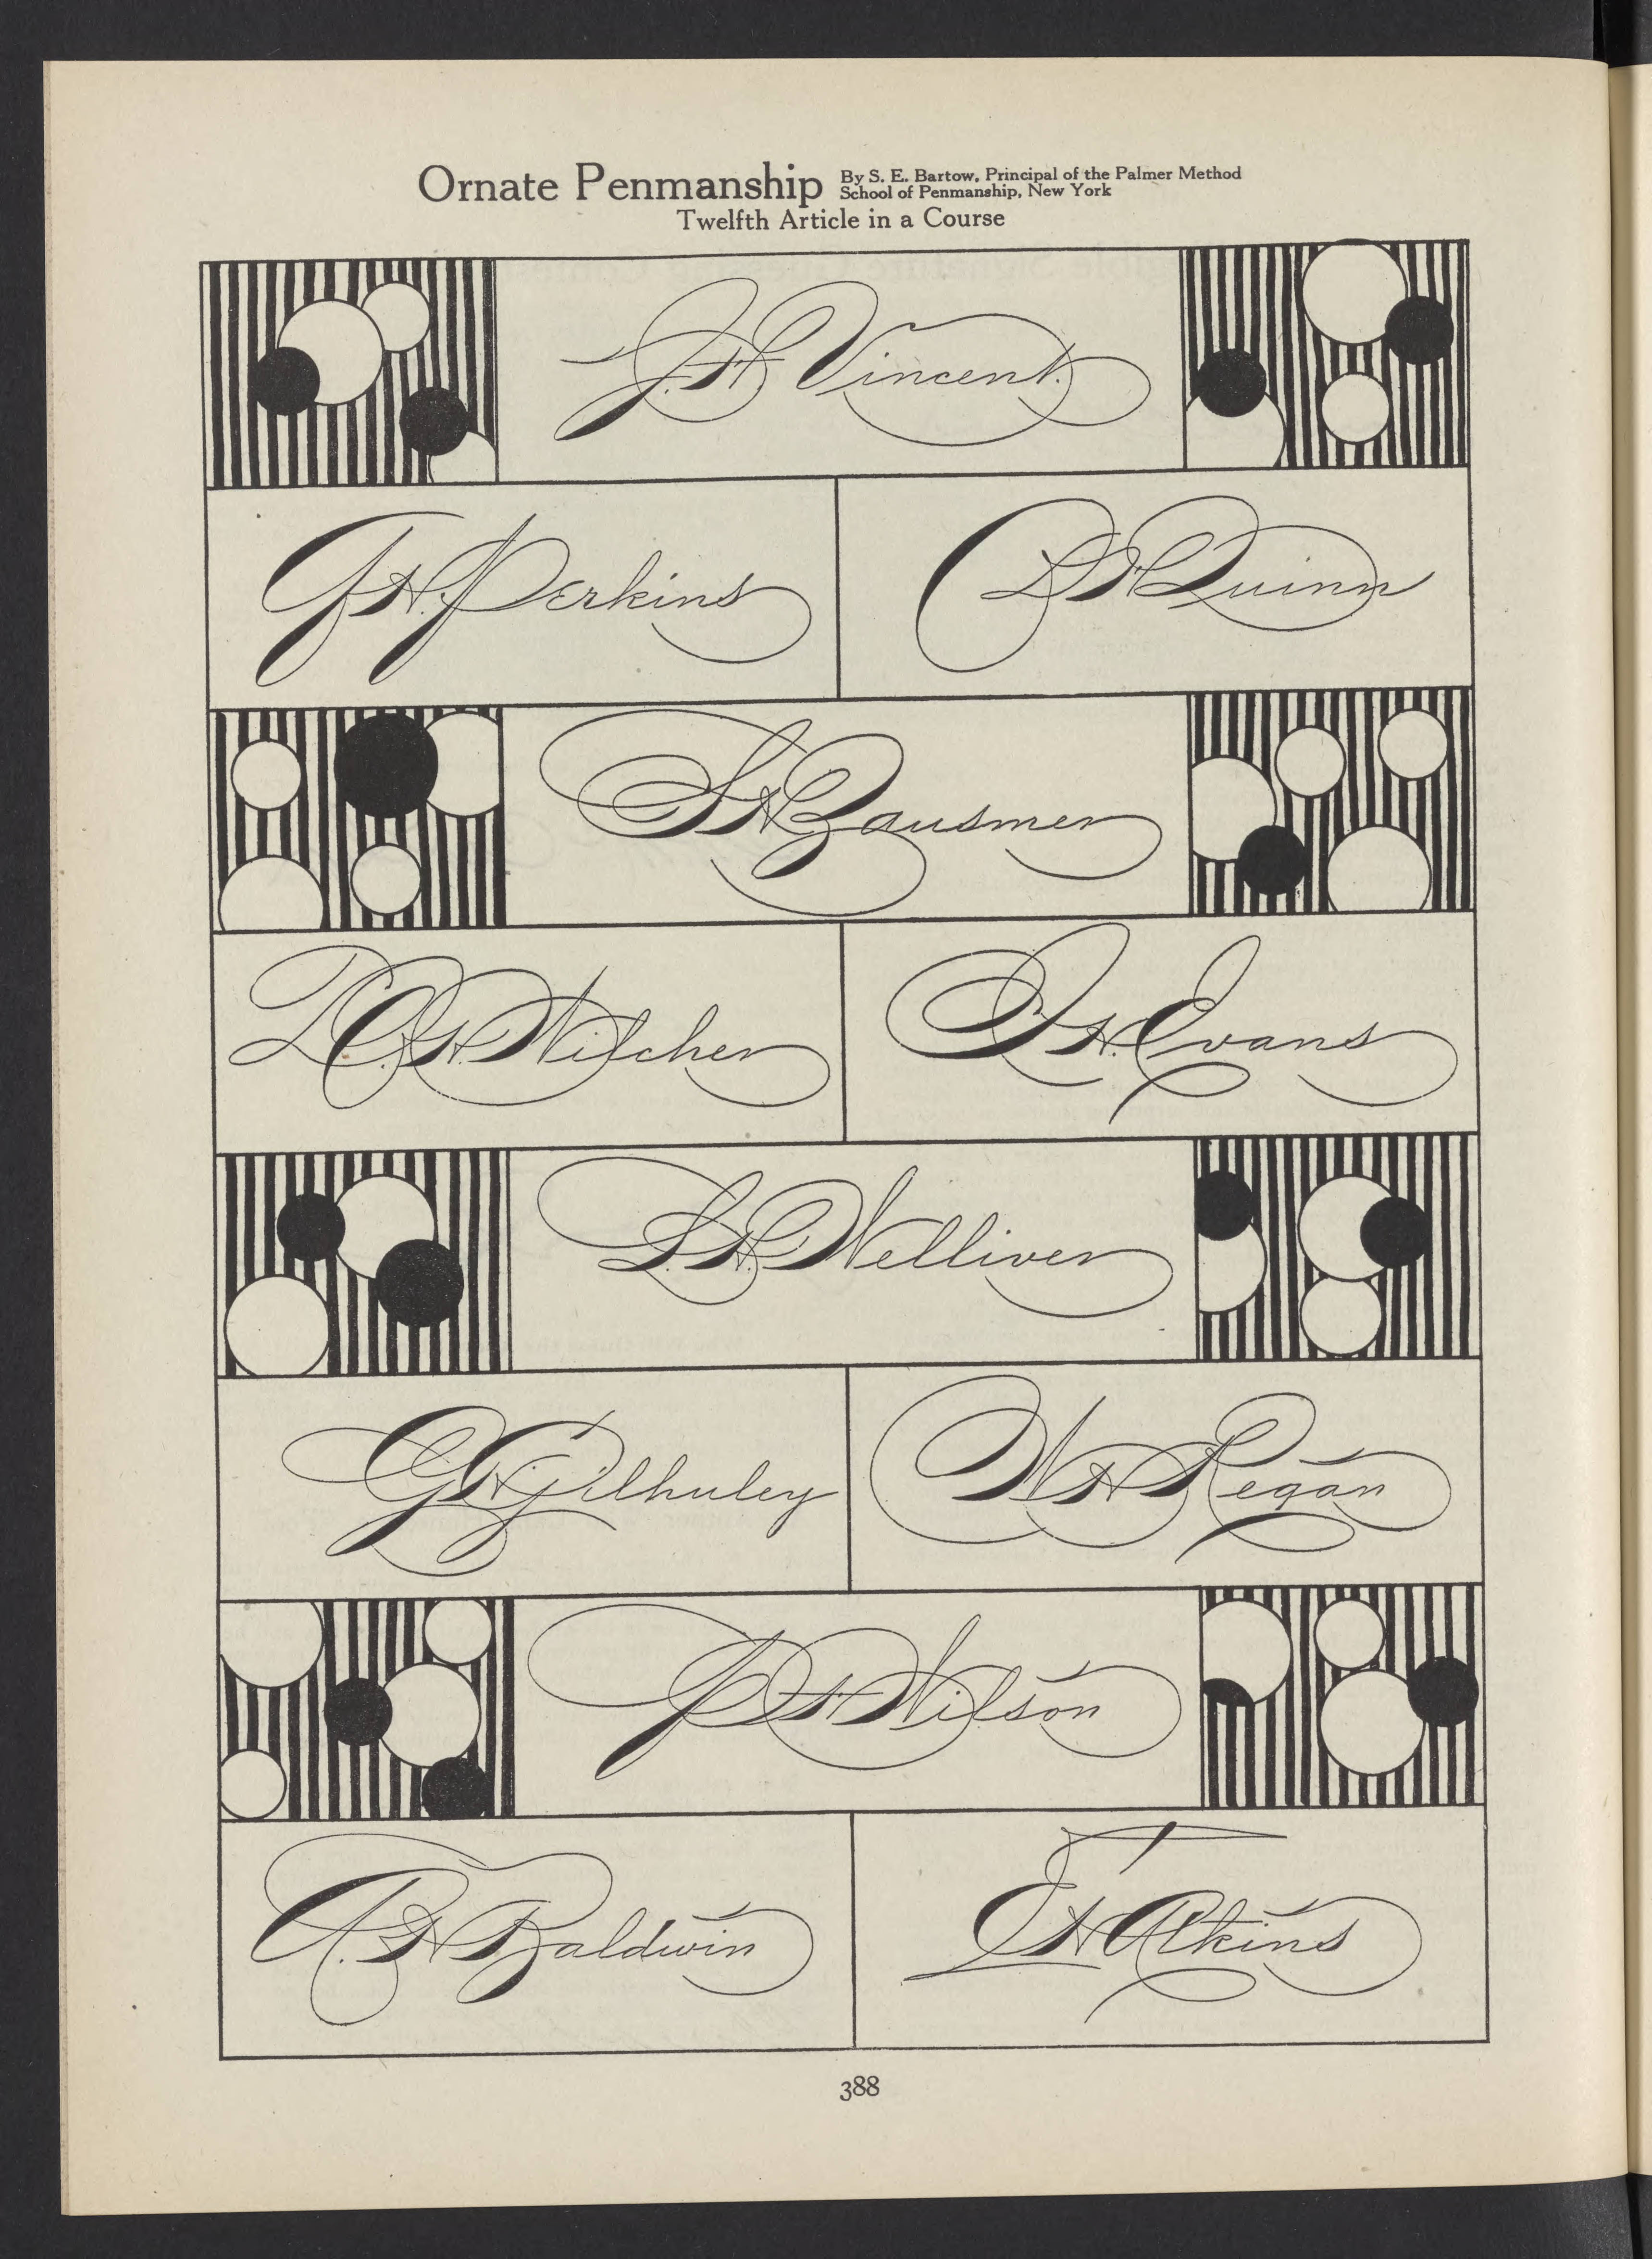 Ornate Penmanship By S. E. Bartow, Principal of the Palmer Method
School of Penmanship, New York
Twelfth Article in a Course
J. H. Vincent.
G. H. Perkins
D. H. Quinn
S. H. Zausmer
H. Witcher
S. H. Evans
L. H. Welliver
G. H. Gilhuley
W. H. Regan
J. H. Wilson
A. H. Baldwin
E. H. Atkins
388